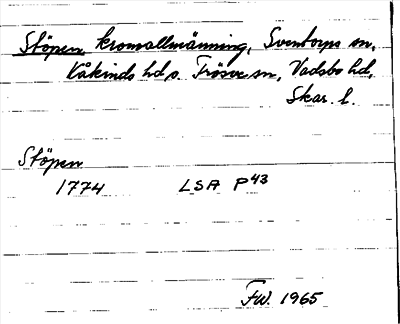 Stöpen kronallmänning, Sventorps sn,
Kåkinds hd, o. Frösve sn, Vadsbo hd,
Skar. l.
Stöpen
1774 LSA P43
FW. 1965